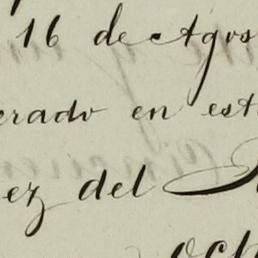 16 de Agos
erado en est
ez del
och